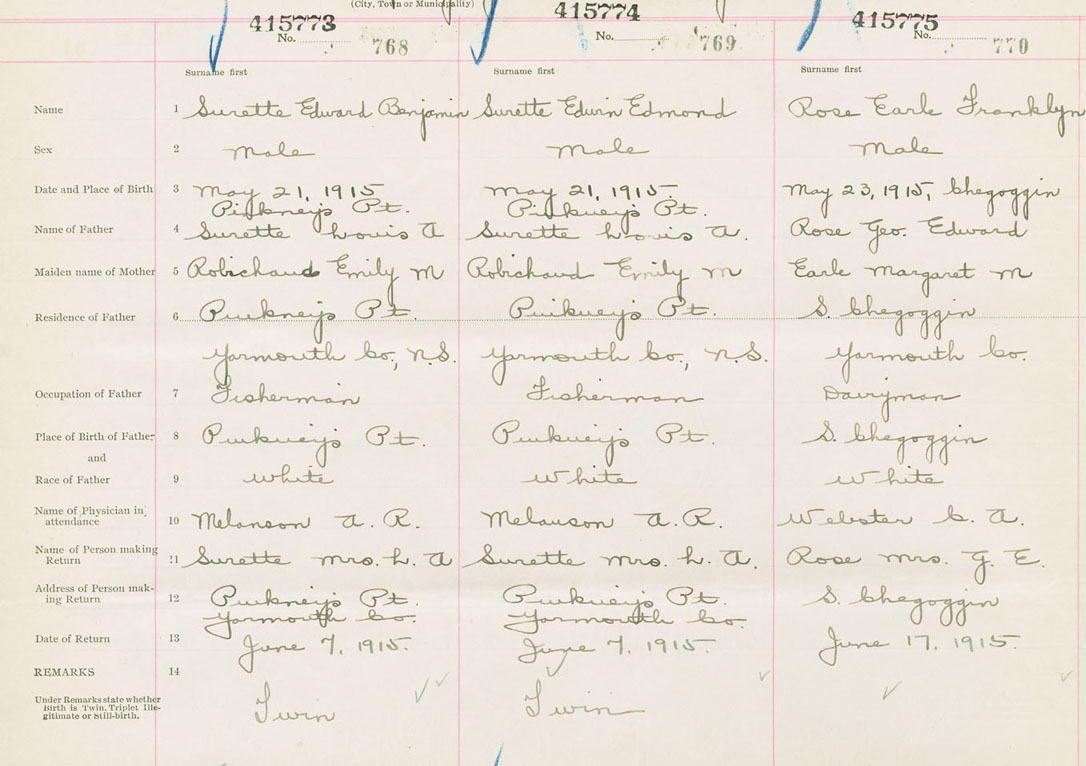 (City, Town or Municipality)
415773 415774 415775
No. 768 No. 769 No. 770
Surname first Surname first Surname first
Name 1 Surette Edward Benjamin Surette Edwin Edmond Rose Earle Franklyn
Sex 2 Male Male Male
Date and Place of Birth 3 May 21, 1915 May 21, 1915 May 23, 1915, Chegoggin
Pinkney's Pt. Pinkney's Pt.
Name of Father 4 Surette Louis A Surette Louis A. Rose Geo. Edward
Maiden name of Mother 5 Robichaud Emily M Robichaud Emily M Earle Margaret M
Residence of Father 6 Pinkney's Pt. Pinkney's Pt. S. Chegoggin
Yarmouth Co., N.S. Yarmouth Co., N.S. Yarmouth Co.
Occupation of Father 7 Fisherman Fisherman Dairyman
Place of Birth of Father 8 Pinkney's Pt. Pinkney's Pt. S. Chegoggin
and
Race of Father 9 White White White
Name of Physician in attendance 10 Melanson A. R. Melanson A. R. Webster C. A.
Name of Person making Return 11 Surette Mrs. L. A Surette Mrs. L. A. Rose Mrs. G. E.
Address of Person mak-
ing Return 12 Pinkney's Pt. Pinkney's Pt. S. Chegoggin
Yarmouth Co. Yarmouth Co.
Date of Return 13 June 7, 1915. June 7, 1915. June 17, 1915.
REMARKS 14
Under Remarks state whether
Birth is Twin, Triplet Ille-
gitimate or Still-birth.
Twin Twin